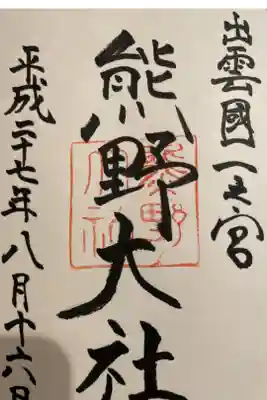 出雲國一之宮
熊野大社
平成二十七年八月十六日